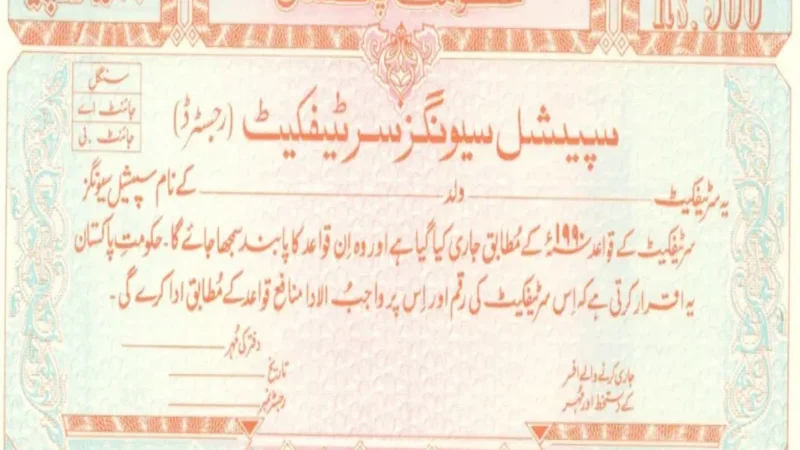 حکومت پاکستان
Rs. 500
سنگل
جائنٹ اے
جائنٹ بی
سپیشل سیونگز سرٹیفکیٹ (رجسٹرڈ)
یہ سرٹیفکیٹ ولد کے نام سپیشل سیونگز
سرٹیفکیٹ کے قواعد ۱۹۹۰ء کے مُطابق جاری کیا گیا ہے اور وہ اِن قواعد کا پابند سمجھا جائے گا۔ حکومتِ پاکستان
یہ اقرار کرتی ہے کہ اِس سرٹیفکیٹ کی رقم اور اِس پر واجبُ الادا منافع قواعد کے مُطابق ادا کرے گی۔
دفتر کی مُہر
جاری کرنے والے افسر تاریخ
کے دستخط اور مُہر رجسٹر نمبر